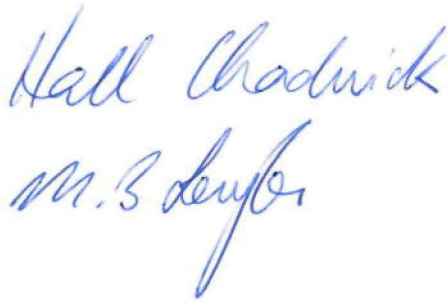 Hall Chadwick
M.B